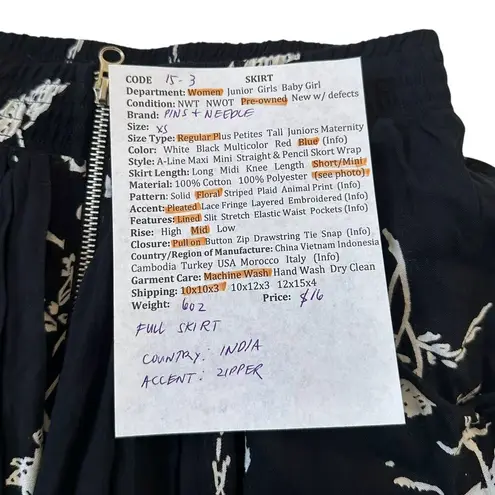 CODE 15-3 SKIRT
Department: Women Junior Girls Baby Girl
Condition: NWT NWOT Pre-owned New w/ defects
Brand: PINS + NEEDLE
Size: XS
Size Type: Regular Plus Petites Tall Juniors Maternity
Color: White Black Multicolor Red Blue (Info)
Style: A-Line Maxi Mini Straight & Pencil Skort Wrap
Skirt Length: Long Midi Knee Length Short/Mini
Material: 100% Cotton 100% Polyester (see photo)
Pattern: Solid Floral Striped Plaid Animal Print (Info)
Accent: Pleated Lace Fringe Layered Embroidered (Info)
Features: Lined Slit Stretch Elastic Waist Pockets (Info)
Rise: High Mid Low
Closure: Pull on Button Zip Drawstring Tie Snap (Info)
Country/Region of Manufacture: China Vietnam Indonesia
Cambodia Turkey USA Morocco Italy (Info)
Garment Care: Machine Wash Hand Wash Dry Clean
Shipping: 10x10x3 10x12x3 12x15x4
Weight: 6oz Price: $16
FULL SKIRT
COUNTRY: INDIA
ACCENT: ZIPPER